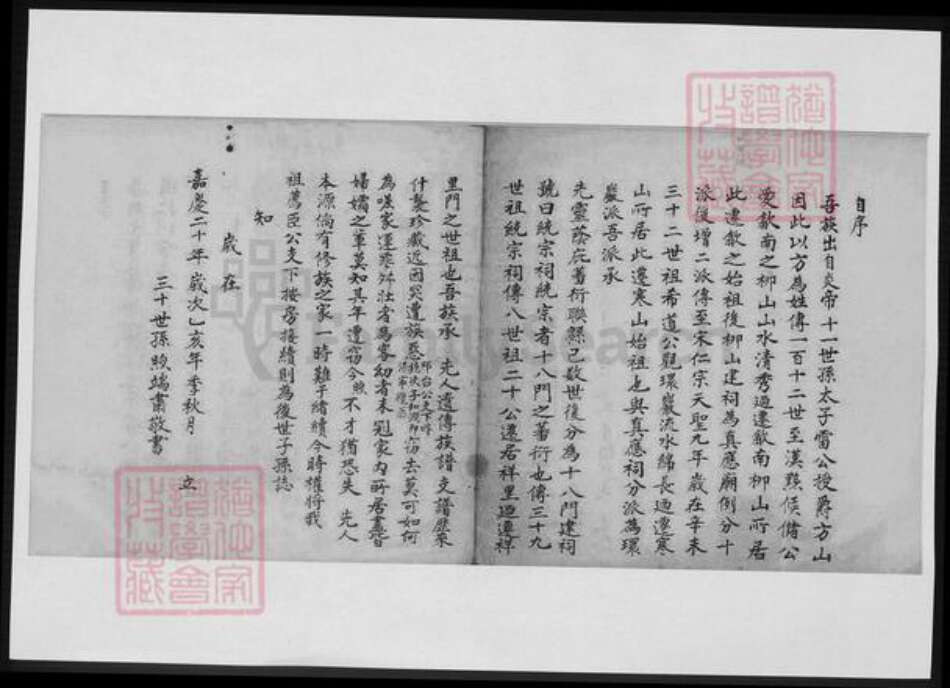 自序
吾族出自炎帝十一世孫太子雷公授爵方山
因此以方為姓傳一百十二世至漢黟侯儲公
愛歙南之柳山山水清秀過遷歙南柳山所居
此遷歙之始祖後柳山建祠為真應廟例分十
派後增二派傳至宋仁宗天聖九年歲在辛未
三十二世祖希道公觀環巖流水綿長廼遷寒
山所居此遷寒山始祖也與真應祠分派為環
巖派吾派承
先靈蔭庇蕃衍聯緜已数世後分為十八門建祠
號曰統宗祠統宗者十八門之蕃衍也傳三十九
世祖統宗祠傳八世祖二十公遷居祥里廼遷祥
里門之世祖也吾族承 先人遺傳族譜支譜歷来
什襲珍藏近因災遭族惡窃去莫可如何
為嗟家運乖舛壯者為客幼者未 家内所居盡皆
婦孺之輩莫知其年遭窃今照不才猶恐失 先人
本源倘有修族之家一時難于續續今時權將我
祖薦臣公支下按房接續則為後世子孫誌
知
歲在
嘉慶二十年歲次乙亥年季秋月
三十世孫照端肅敬書 立
譜學會
收藏
譜學會
收藏